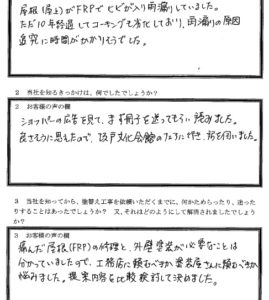 屋根(屋上)がFRPでヒビが入り雨漏していました。
ただ10年経過してコーキングも劣化しており、雨漏の原因
追究に時間がかかりそうでした。
2 当社を知るきっかけは、何でしたでしょうか?
2 お客様の声の欄
ショッパーの広告を見て、まず冊子を送ってもらい読みました。
良さそうに思えたので、坂戸文化会館のフェアに行き、話を伺いました。
3 当社を知ってから、塗替え工事を依頼いただくまでに、何かためらったり、迷った
りすることはあったでしょうか? 又、それはどのようにして解消されましたでしょう
か?
3 お客様の声の欄
痛んだ屋根(FRP)の修理と、外壁塗装が必要なことは
分かっていましたので、工務店に頼むべきか塗装屋さんに頼むべきか
悩みました。提案内容を比較検討して決めました。